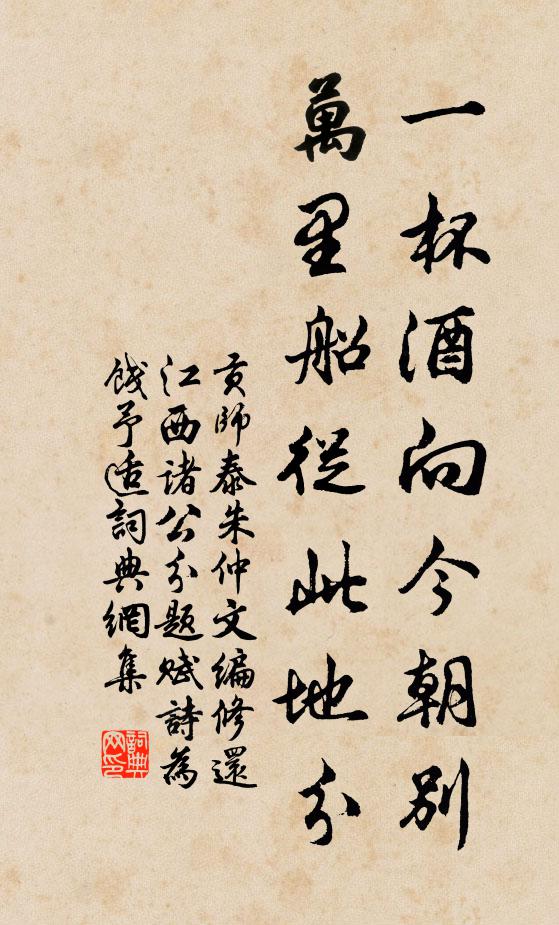 一杯酒向今朝別
萬里船從此地分
貢師泰朱仲文編修還
江西諸公分題賦詩為
餞予适詞典網集
詞典網印